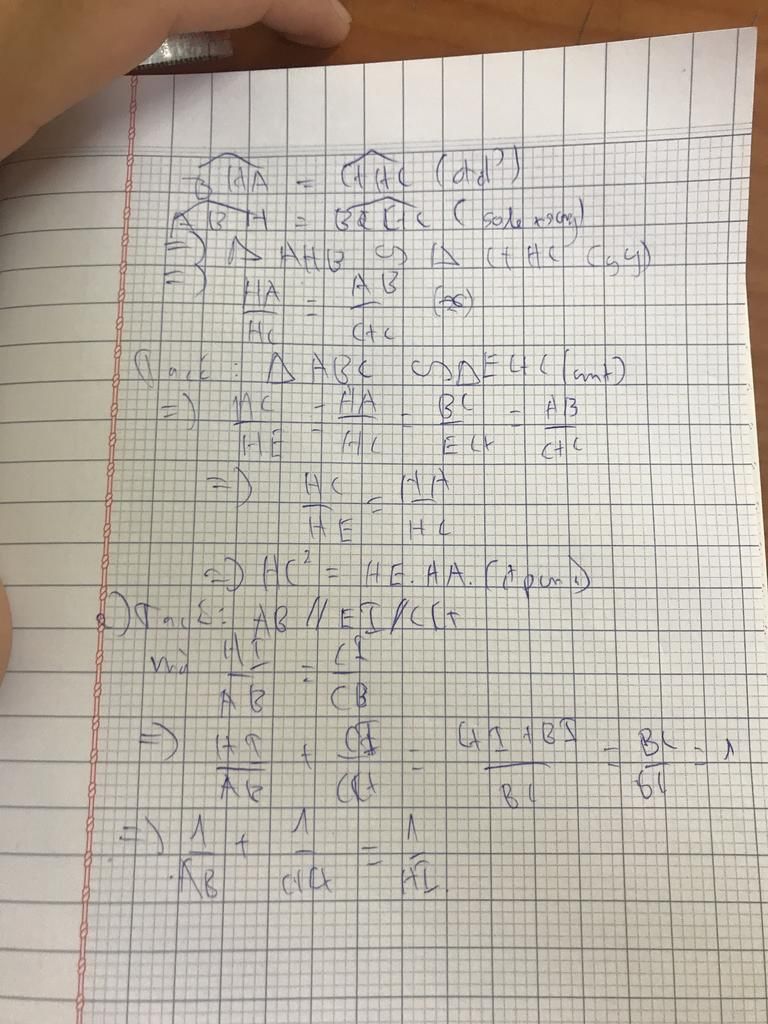 BHA = CHG (đđ)
ABH = BGC (sole trong)
=> Δ AHB ∽ Δ GHC (gg)
=> HA/HC = AB/GC
Ta có: Δ ABC ∽ Δ EGC (cmt)
=> HC/HE = HA/HC = BC/EG = AB/GC
=> HC/HE = HA/HC
=> HC² = HE.HA. (đpcm)
Ta có: AB // EI // CG
mà HI/AB = CI/CB
=> HI/AB + = CI + BI/BC = BC/BC = 1
=> 1/AB + 1/CG = 1/HI.